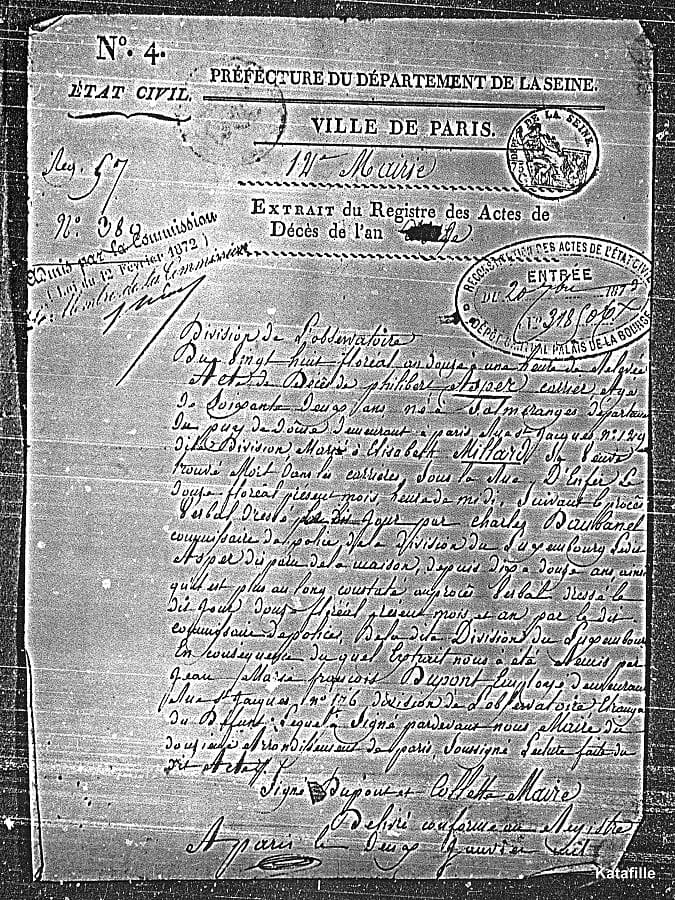 N.º 4.
ÉTAT CIVIL.
PRÉFECTURE DU DÉPARTEMENT DE LA SEINE.
VILLE DE PARIS.
12me Mairie
DE LA SEINE
Reg. 57
Nº 383
EXTRAIT du Registre des Actes de
Décès de l'an
Admis par la Commission
(Loi du 12 Février 1872)
Le Membre de la Commission
RECONSTITUTION DES ACTES DE L'ÉTAT CIVIL
ENTRÉE
DU 20
DÉPÔT CENTRAL PALAIS DE LA BOURSE
Division de L'observatoire
Du vingt huit floréal an douze à une heure de
Acte de Décès de philibert Asper carrier Agé
De Soixante Deux ans, né à Salmeranges département
Du puy de Dôme demeurant à paris, Rue St Jacques nº 129
dite Division, Marié à Elisabeth Millard Sa Veuve
trouvé Mort Dans les carrières, sous la Rue D'Enfer Le
Douze floréal présent mois, heure de midi, Suivant le procès
Verbal Dressé Le Dit Jour par charles Daubanel
commissaire de police, de la Division du Luxembourg Ledit
Asper disparu de la maison, depuis dix a douze ans, ainsi
qu'il est plus au long constaté au procès Verbal dressé le
dit Jour douze floréal présent mois, et an par le dit
commissaire de polices, De la dite Division du Luxembourg
En conséquence du quel Extrait nous à été Remis par
Jean françois Dupont Employé demeurant
Rue St Jacques, nº 176, division de L'observatoire
du Défunt, Lequel à Signé pardevant nous Maire du
douzieme arrondissement de paris, soussigné Lecture faite du
dit Acte
Signé Dupont et Collette Maire
Délivré conforme au Registre
A paris le Deux Janvier
Katafille